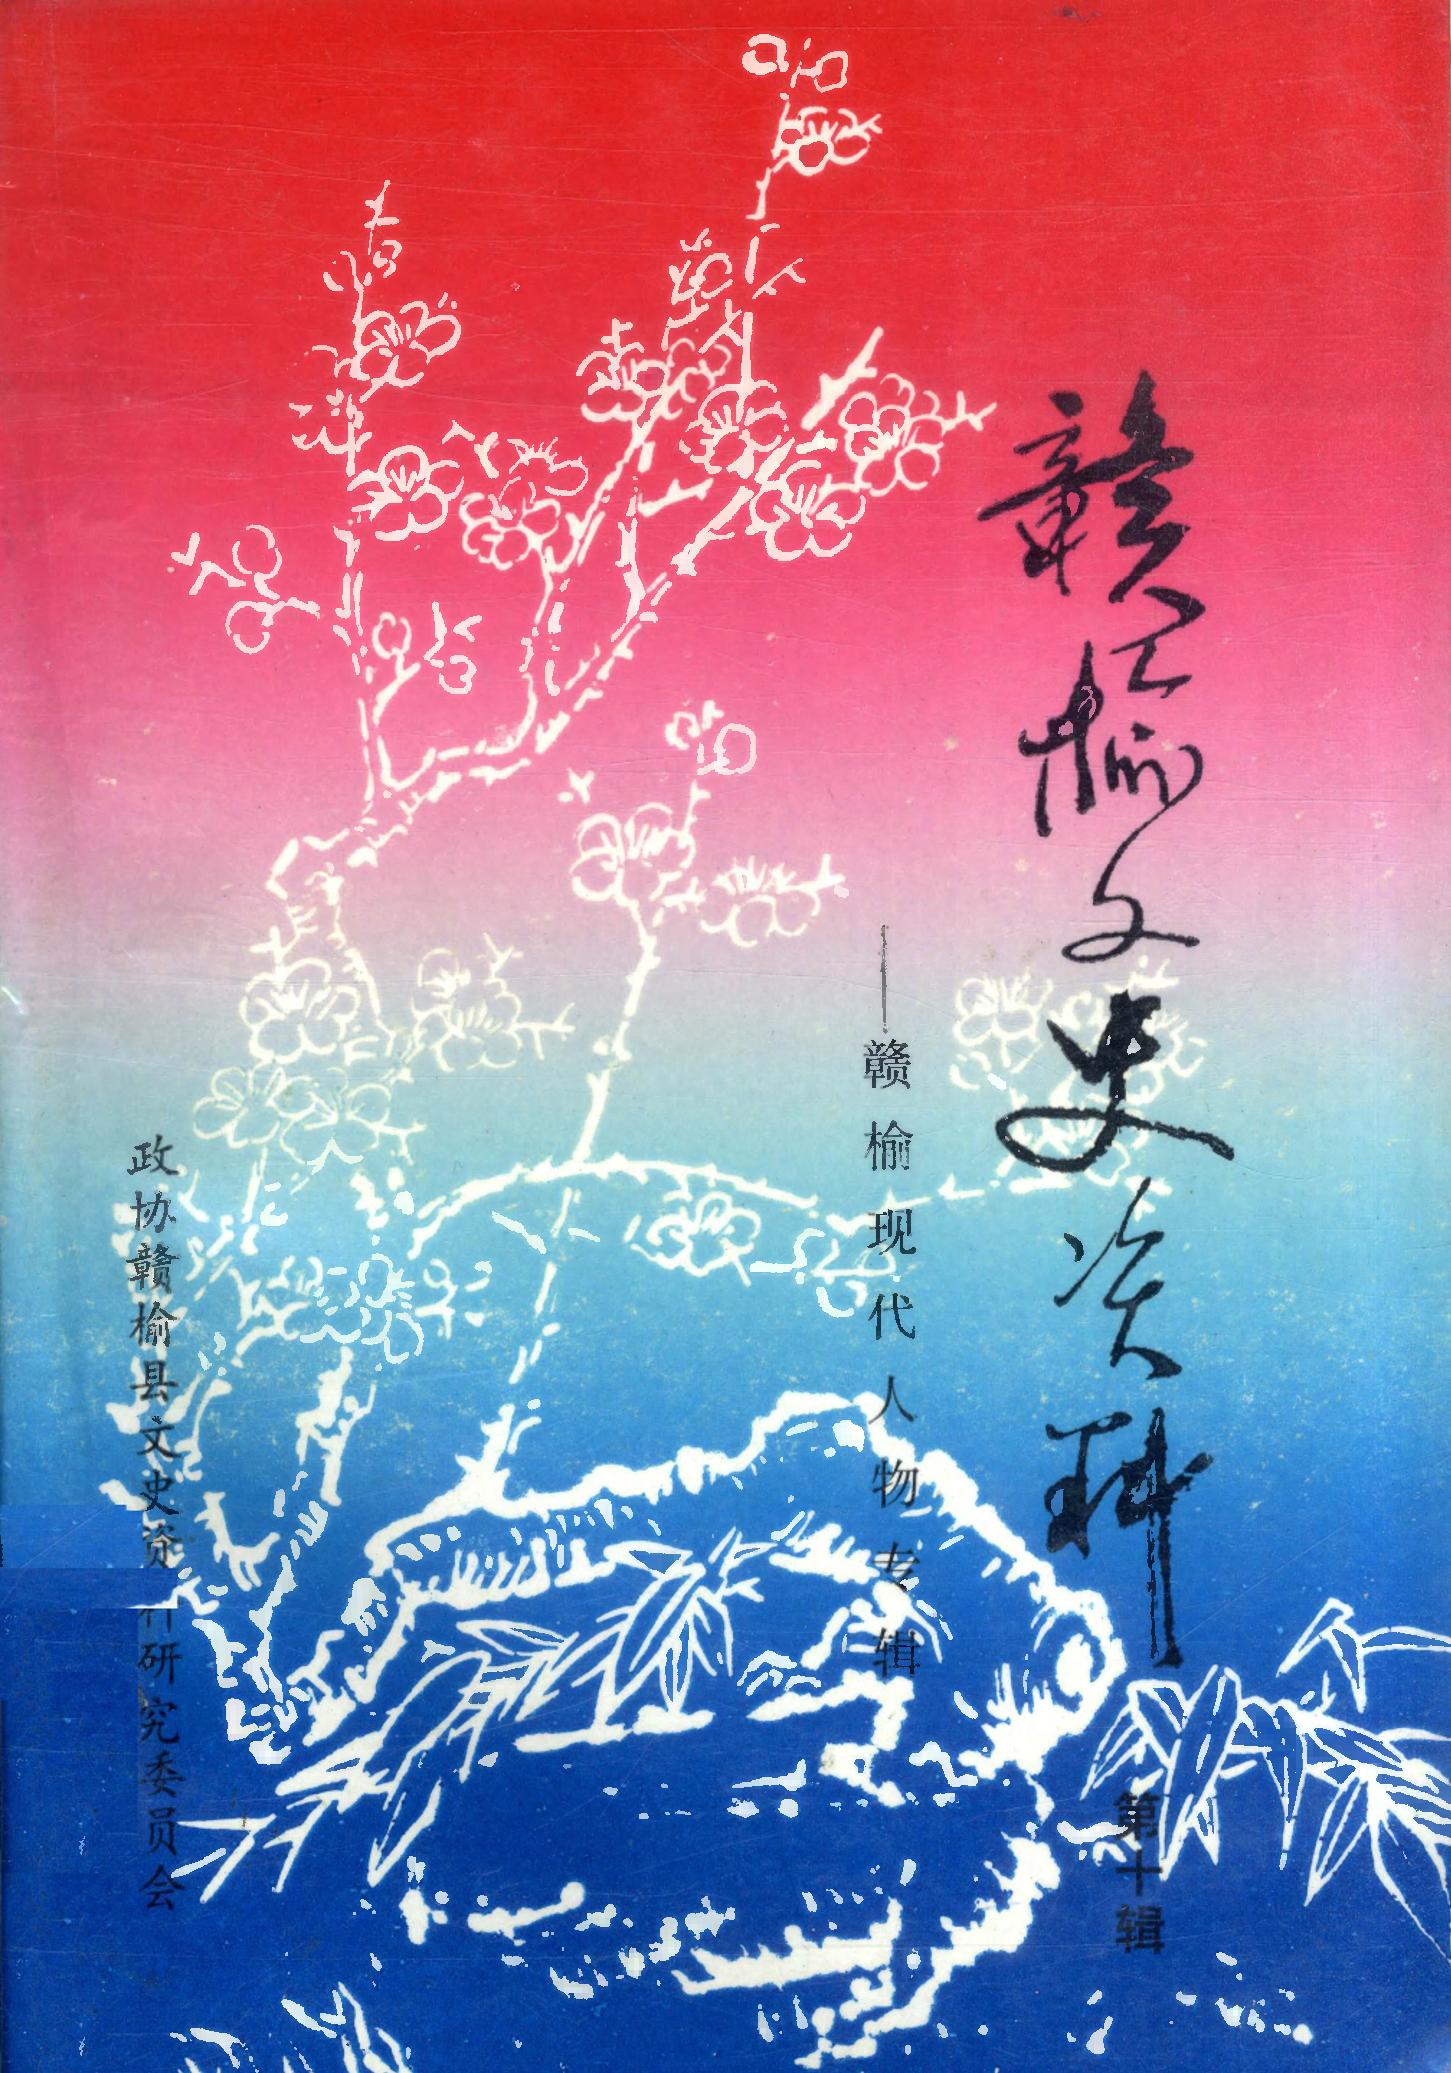 赣榆文史资料
——赣榆现代人物专辑
第十辑
政协赣榆县文史资料研究委员会